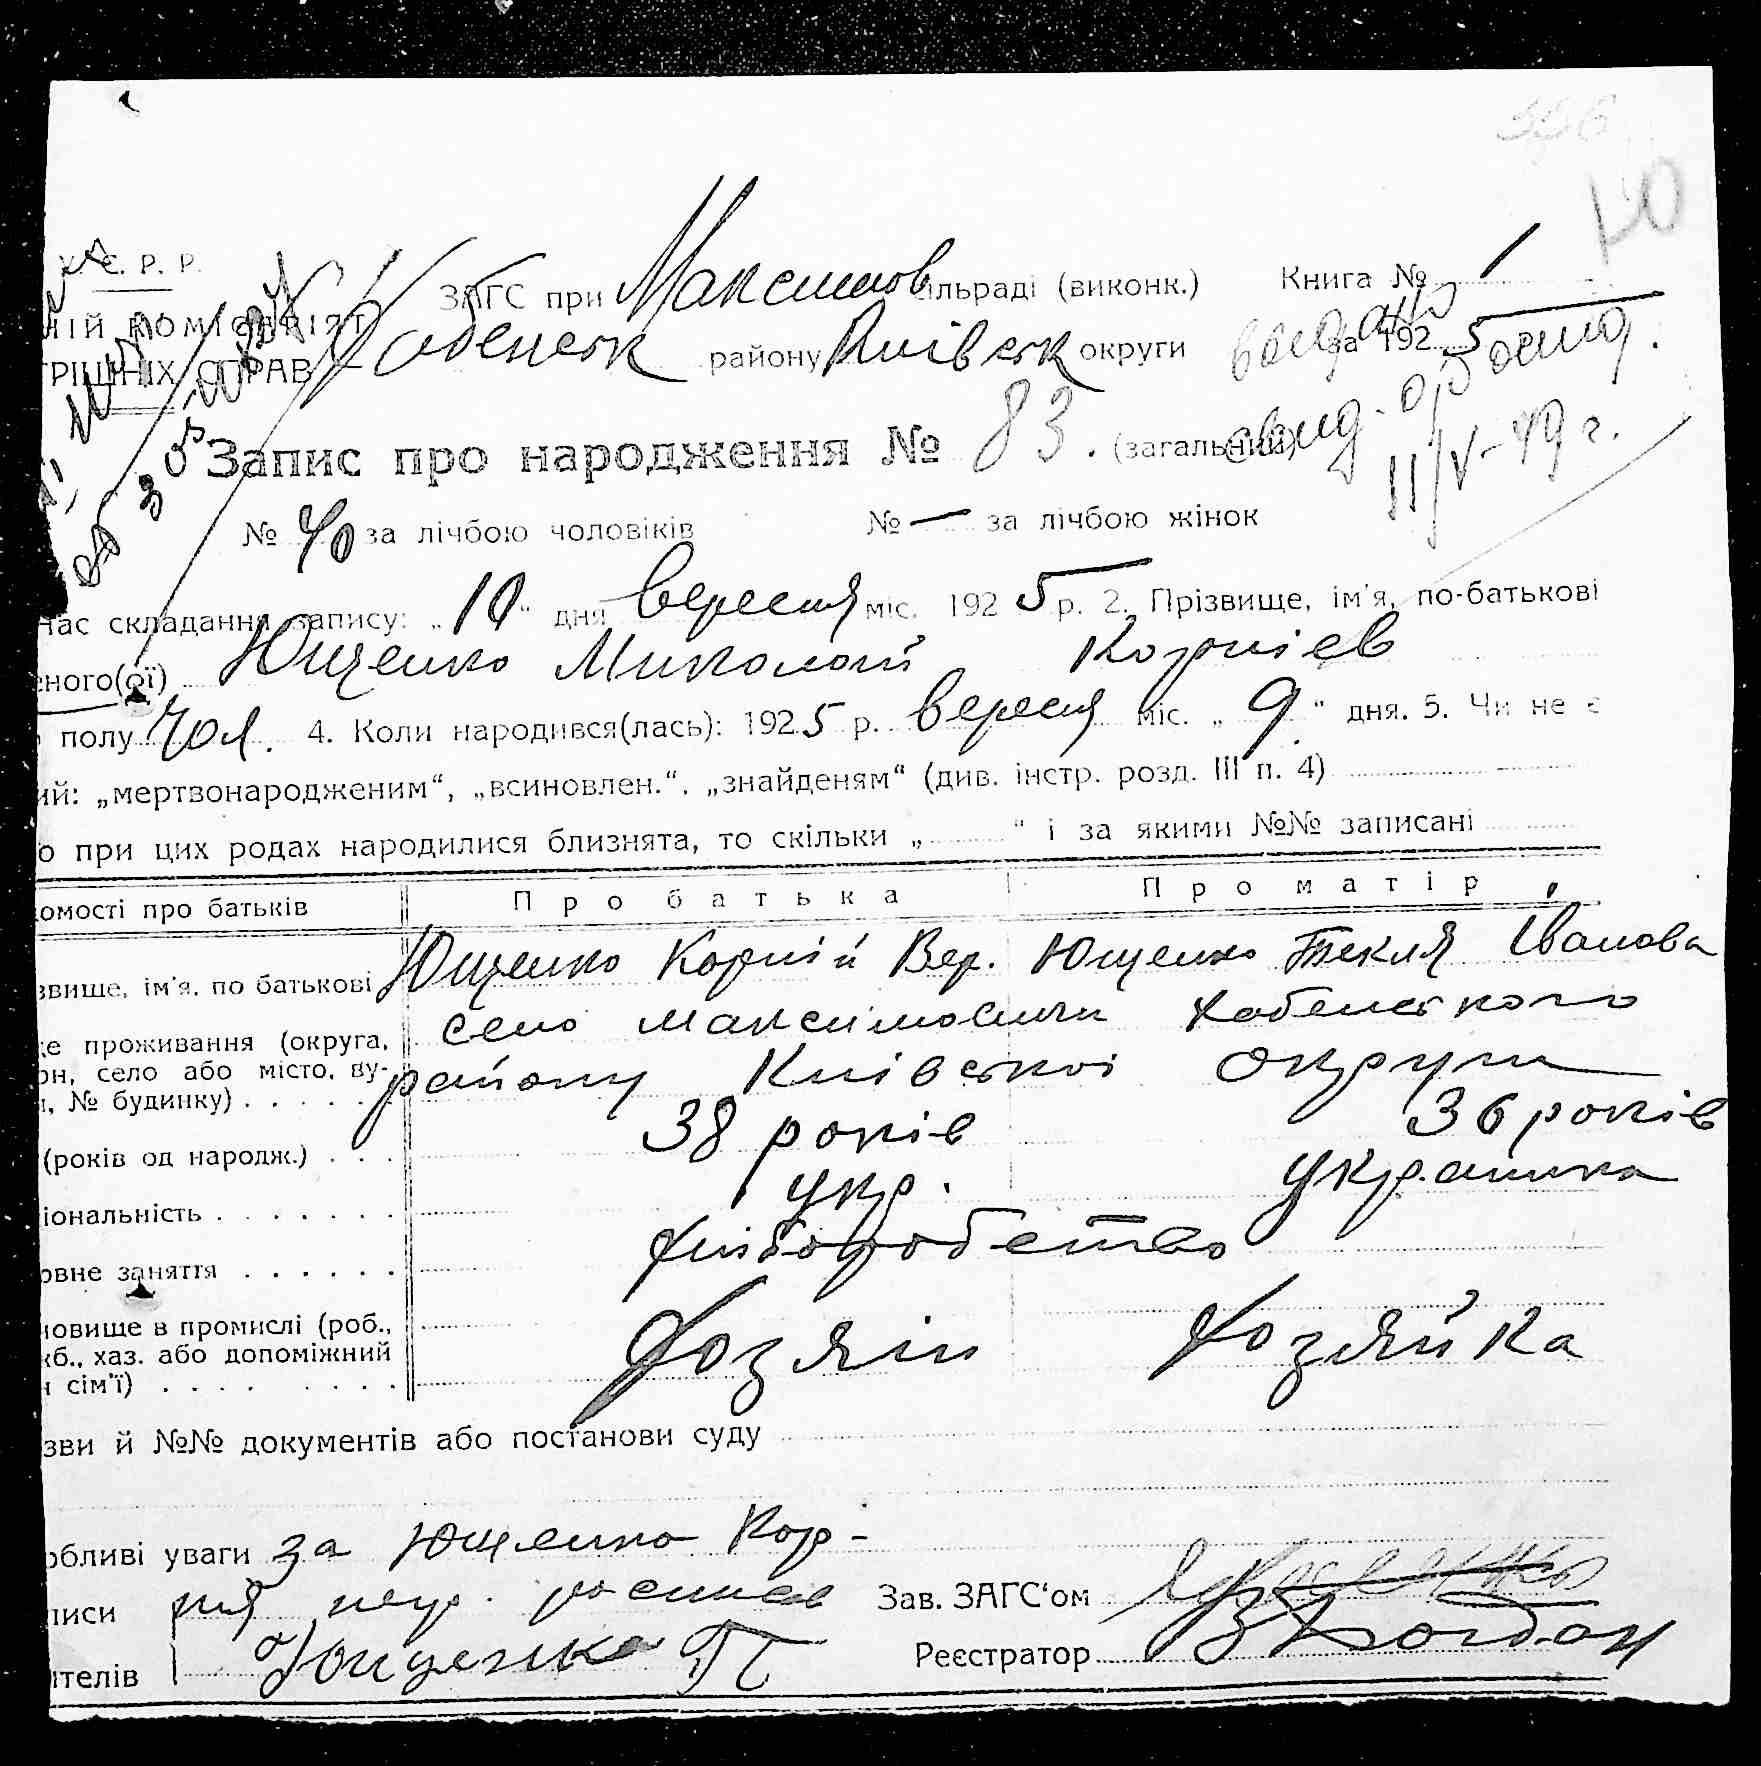 У. С. Р. Р.
ЗАГС при Максимов ільраді (виконк.) Книга № 1
ній коміcаріят
Хабенськ району Київськ округи за 1925
трішніх справ
Запис про народження № 83. (загальний)
свид.
11/V-49 г.
№ 40 за лічбою чоловіків № — за лічбою жінок
Час складання запису: „10“ дня вересня міс. 1925 р. 2. Прізвище, ім'я, по-батькові
еного(ої) Ющенко Миколай Корнієв
полу чол. 4. Коли народився(лась): 1925 р. вересня міс. „9“ дня. 5. Чи не є
ий: „мертвонародженим“, „всиновлен.“, „знайденям“ (див. інстр. розд. III п. 4)
о при цих родах народилися близнята, то скільки „ “ і за якими №№ записані
омості про батьків Про батька Про матір
звище, ім'я, по батькові Ющенко Корній Вер. Ющенко Текля Іванова
це проживання (округа, село Максимовичи Хабенського
он, село або місто, ву- району Київської округи
, № будинку)
(років од народж.) 38 років 36 років
іональність укр. українка
овне заняття хліборобство
новище в промислі (роб.,
жб., хаз. або допоміжний Хозяін Хозяйка
н сім'ї)
зви й №№ документів або постанови суду
обливі уваги за Ющенко Кор-
писи нія негр. росписав Зав. ЗАГС'ом
ителів Ющенко П Реєстратор